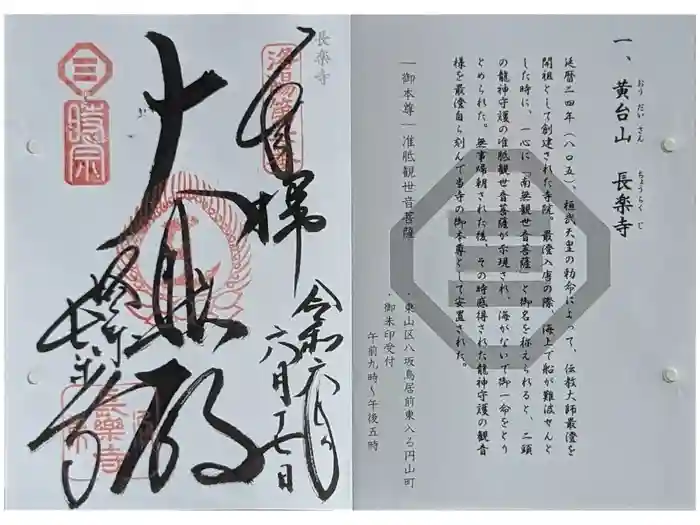 一、黄台山 長楽寺
おうだいさん ちょうらくじ
延暦二四年(八〇五)、桓武天皇の勅命によって、伝教大師最澄を
開祖として創建された寺院。最澄入唐の際、海上で船が難波せんと
した時に、一心に「南無観世音菩薩」と御名を称えられると、二頭
の龍神守護の准胝観世音菩薩が示現され、海がないで御一命をとり
とめられた。無事帰朝された後、その時感得された龍神守護の観音
様を最澄自ら刻んで当寺の御本尊として安置された。
―御本尊―准胝観世音菩薩
・東山区八坂鳥居前東入る円山町
・御朱印受付
午前九時~午後五時
長楽寺
奉拝
令和六年
六月十七日
大悲殿
長楽寺
三
時宗